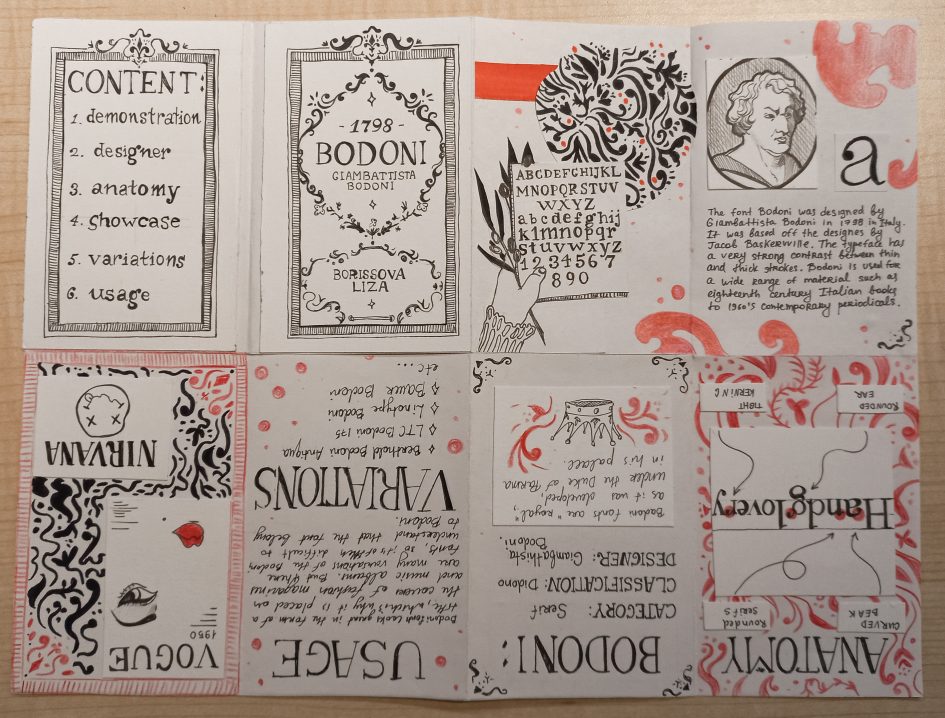 CONTENT:
1. demonstration
2. designer
3. anatomy
4. showcase
5. variations
6. usage
- 1798 -
BODONI
GIAMBATTISTA
BODONI
BORISSOVA
LIZA
ABCDEFGHIJKL
MNOPQRSTUV
WXYZ
abcdefghij
klmnopqr
stuvwxyz
1234567
890
a
The font Bodoni was designed by
Giambattista Bodoni in 1798 in Italy.
It was based off the designes by
Jacob Baskerwille. The typeface has
a very strong contrast between thin
and thick strokes. Bodoni is used for
a wide range of material such as
eighteenth century Italian books
to 1960's contemporary periodicals.
ANATOMY
CURVED
BEAK
Rounded
SERIFS
Handglovery
ROUNDED
EAR
TIGHT
KERNING
BODONI:
CATEGORY: Serif
CLASSIFICATION: Didone
DESIGNER: Giambathista
Bodoni.
Bodoni fonts are "royal",
as it was developed,
under the Duke of Parma
in his palace.
USAGE
Bodoni font looks great in the form of a
title, which is why it is placed on
the covers of fashion magazines
and music albums. But there
are many variations of the Bodoni
fonts, so it's often difficult to
understand that the font belong
to Bodoni.
VARIATIONS
◊ Berthold Bodoni Antiqua
◊ LTC Bodoni 175
◊ Linotype Bodoni
◊ Bauer Bodoni
etc...
VOGUE
1950
NIRVANA